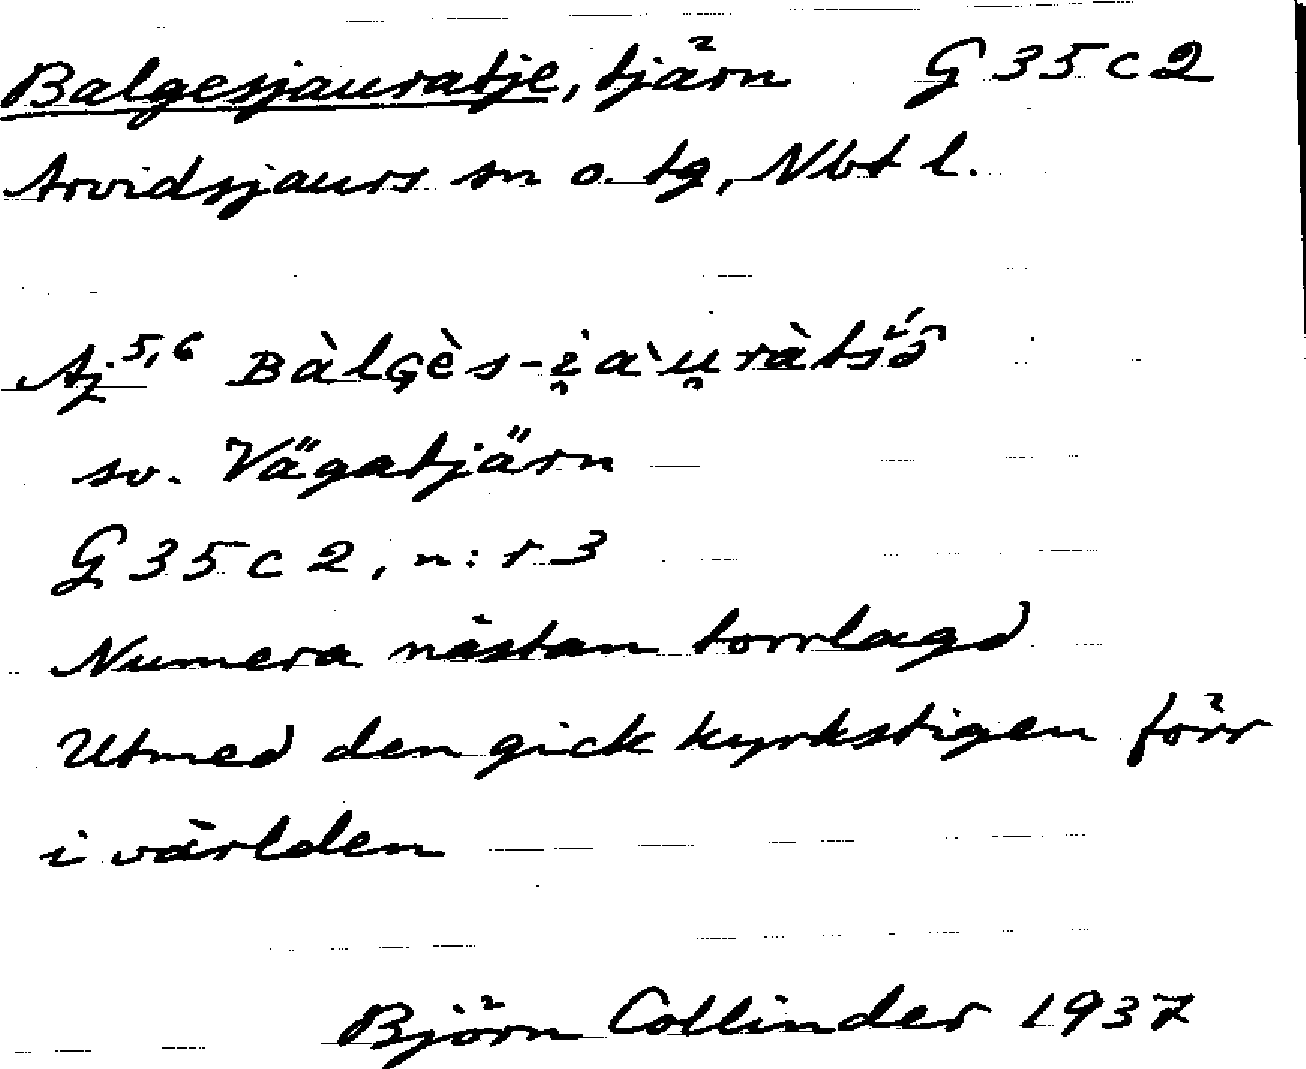 Balgesjauratje, tjärn G 35 c 2
Arvidsjaurs sn o. tg, Nbt l.
Aj 5,6 Bàlgès-i̯àu̯ràtsɜ̂
sv. Vägatjärn
G 35 c 2, n:r 3
Numera nästan torrlagd
Utmed den gick kyrkstigen förr
i världen
Björn Collinder 1937